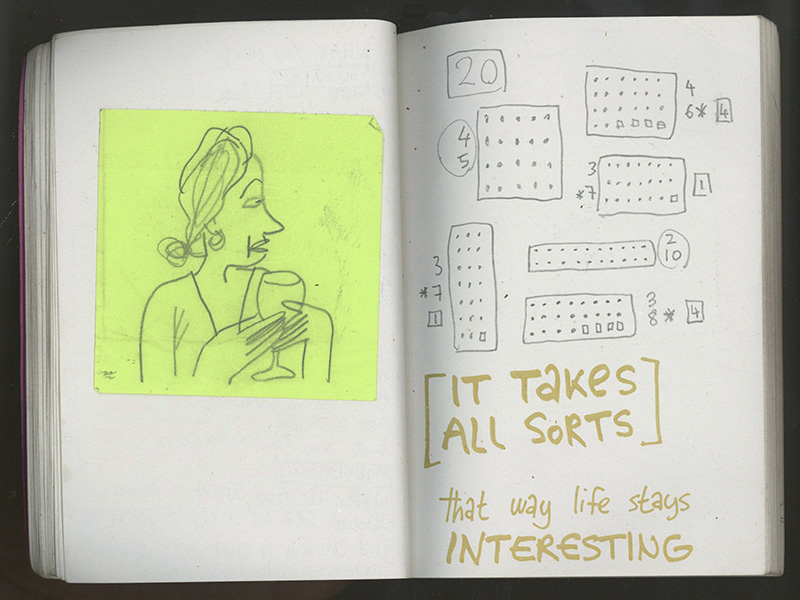 20
4
5
4
6* 4
3
*7 1
3
*7
1
2
10
3
8* 4
[IT TAKES
ALL SORTS]
that way life stays
INTERESTING